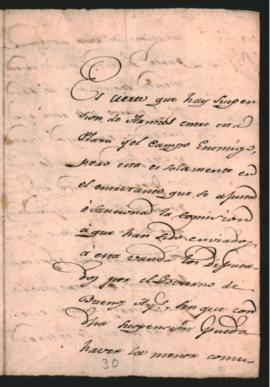 Es cierto que hay suspen
sion de Armas entre esa
Plaza y el campo Enemigo,
pero esta es solamente en
el entretanto que se ajusta
ò sanciona la comision
a que han sido enviados
a esta vanda los Diputa
dos por el Govierno de
Buenos Ayrs sin que con
dha suspension pueda
haver la menor comu-
30